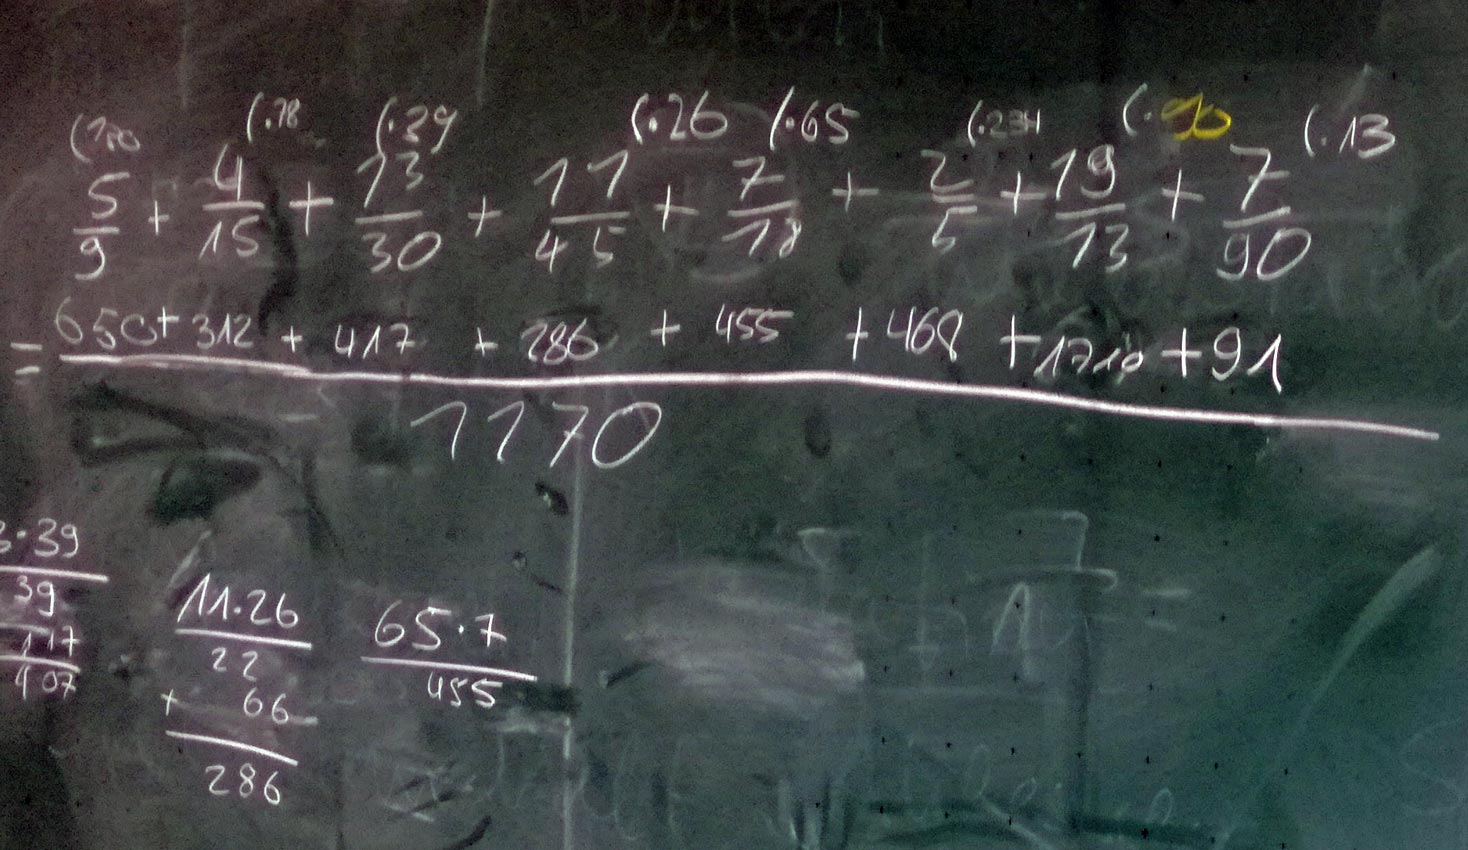 (130 (.78 (.39 (.26 (.65 (.234 (.90 (.13
5/9 + 4/15 + 13/30 + 11/45 + 7/18 + 2/5 + 19/13 + 7/90
= 650 + 312 + 417 + 286 + 455 + 468 + 1710 + 91
1170
3·39
39
117
407
11·26
22
+ 66
286
65·7
455